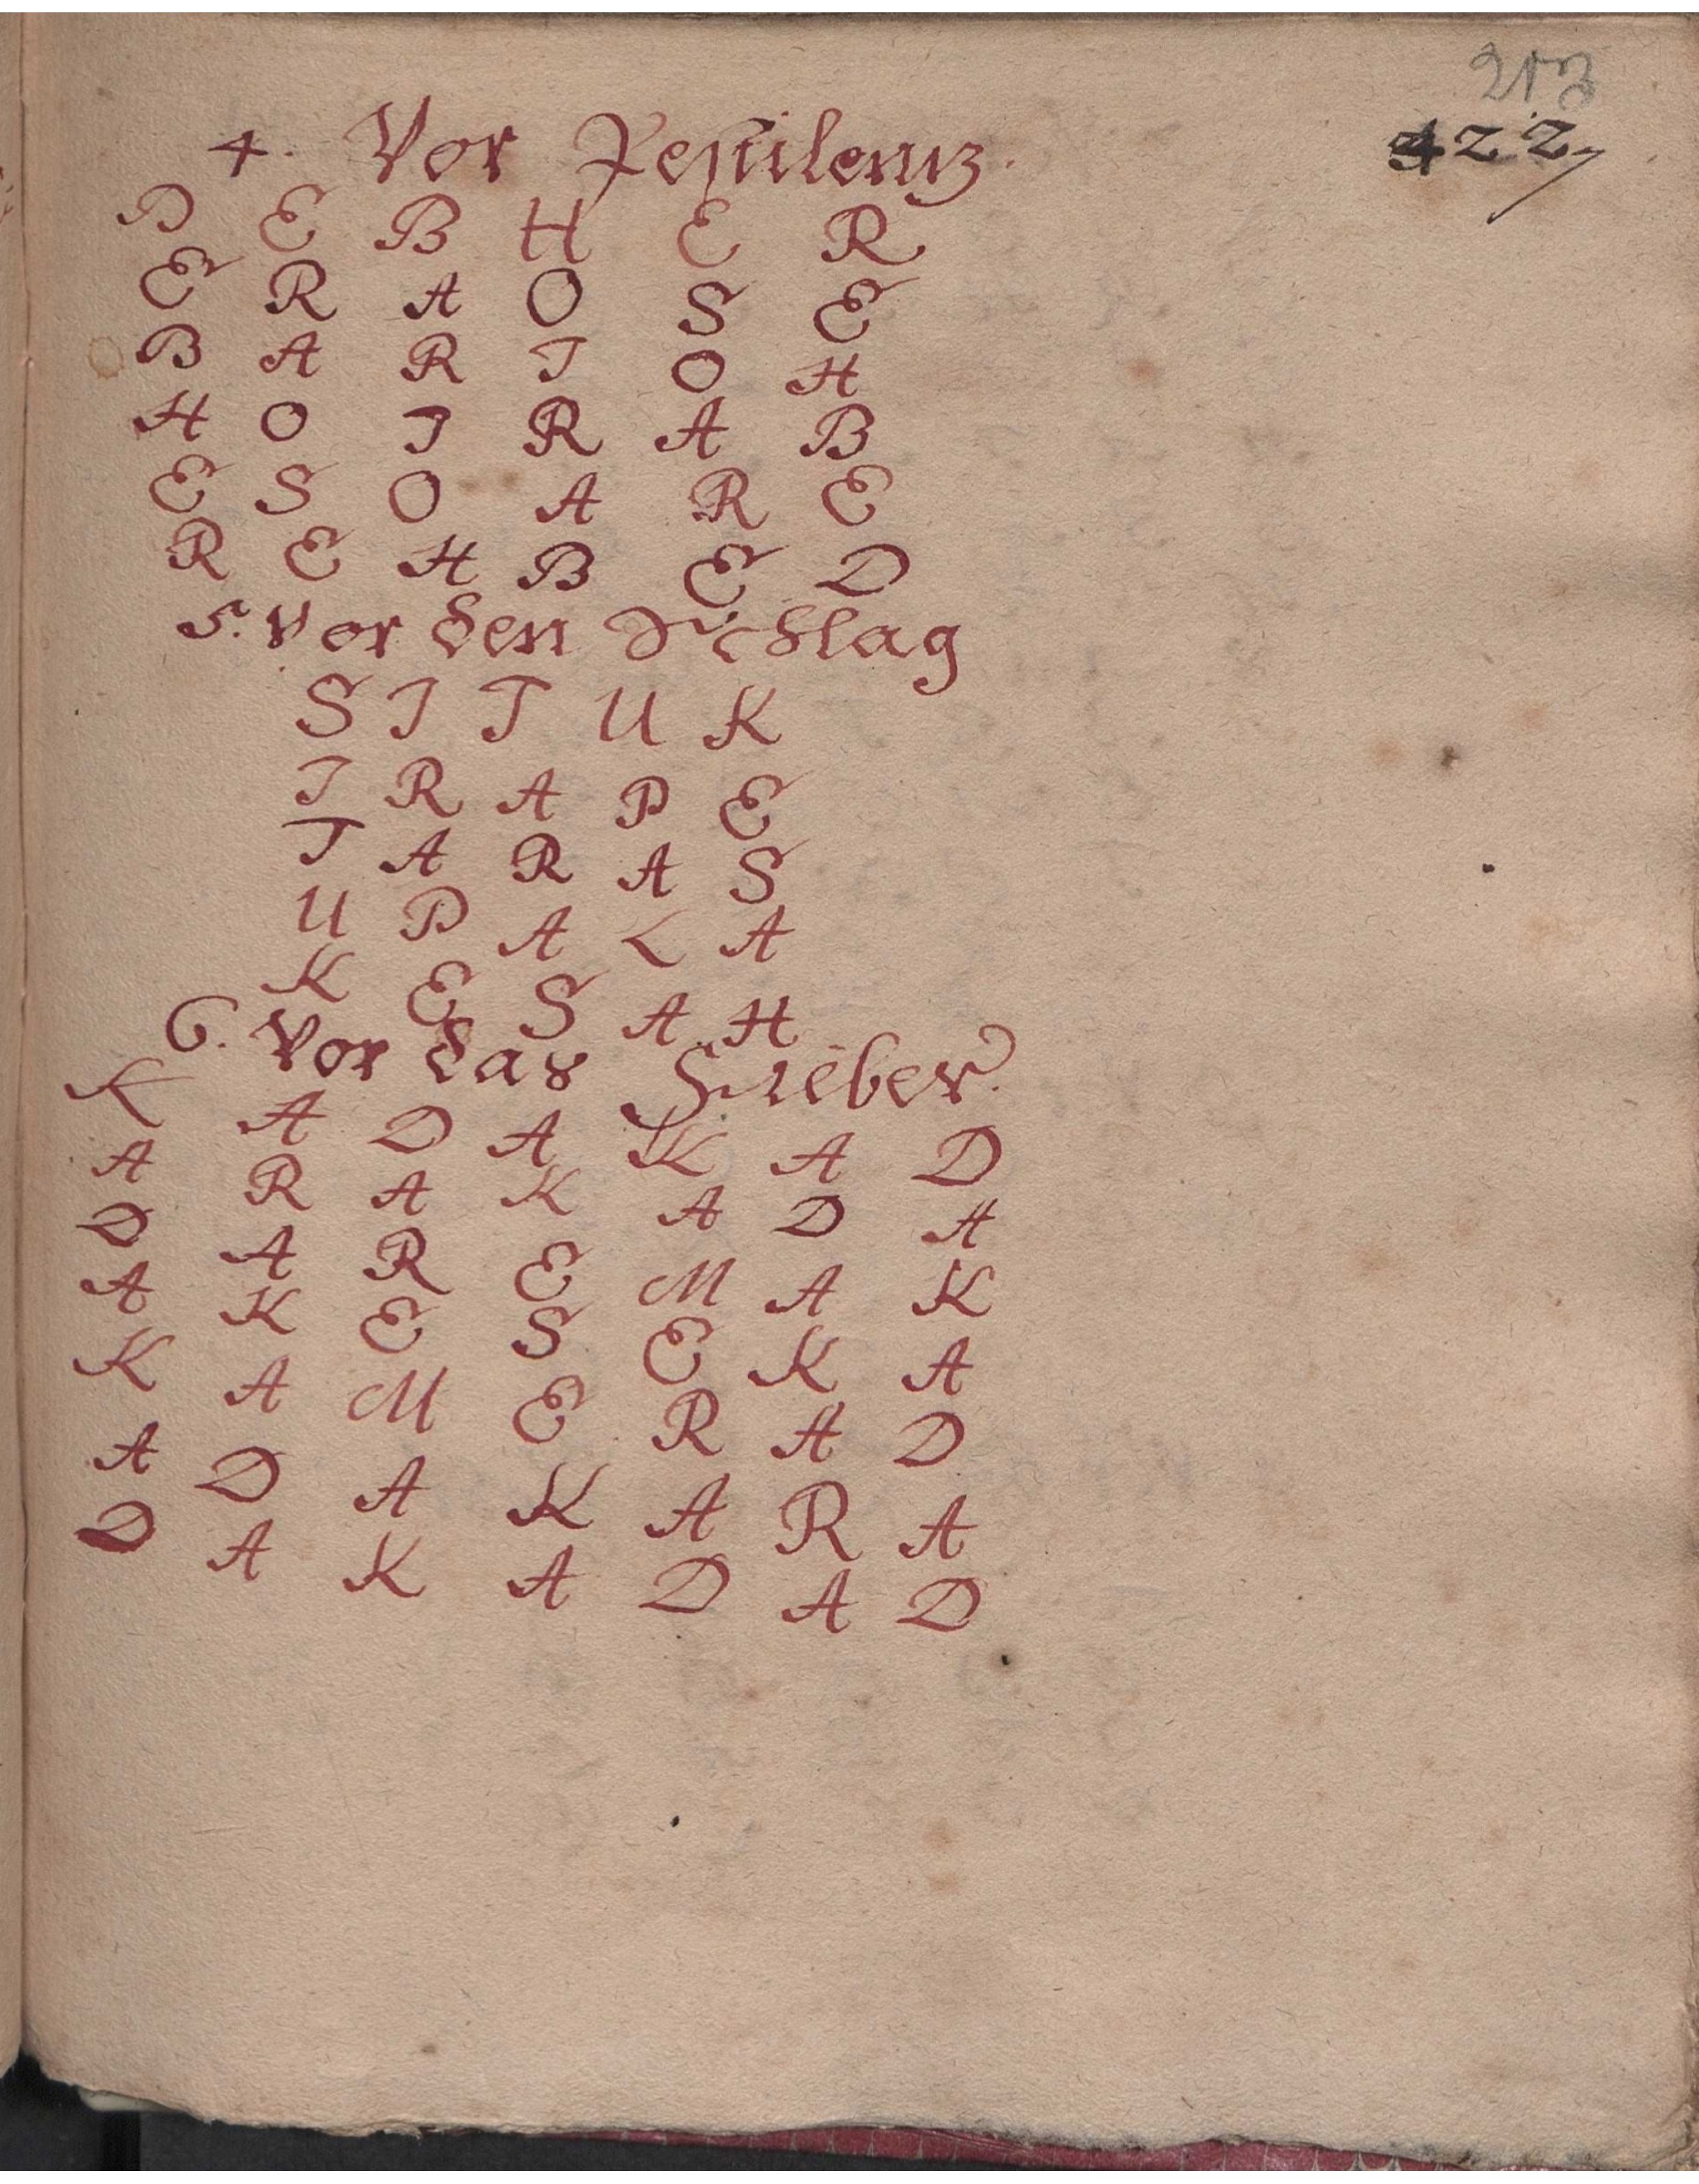 213
422
4. Vor Pestilentz.
D E B H E R
E R A O S E
B A R I O H
H O I R A B
E S O A R E
R E H B E D
5. Vor den Schlag
S I T U K
I R A P E
T A R A S
U P A L A
K E S A H
6. Vor das Fieber.
K A D A K A D
A R A K A D A
D A R E M A K
A K E S E K A
K A M E R A D
A D A K A R A
D A K A D A D